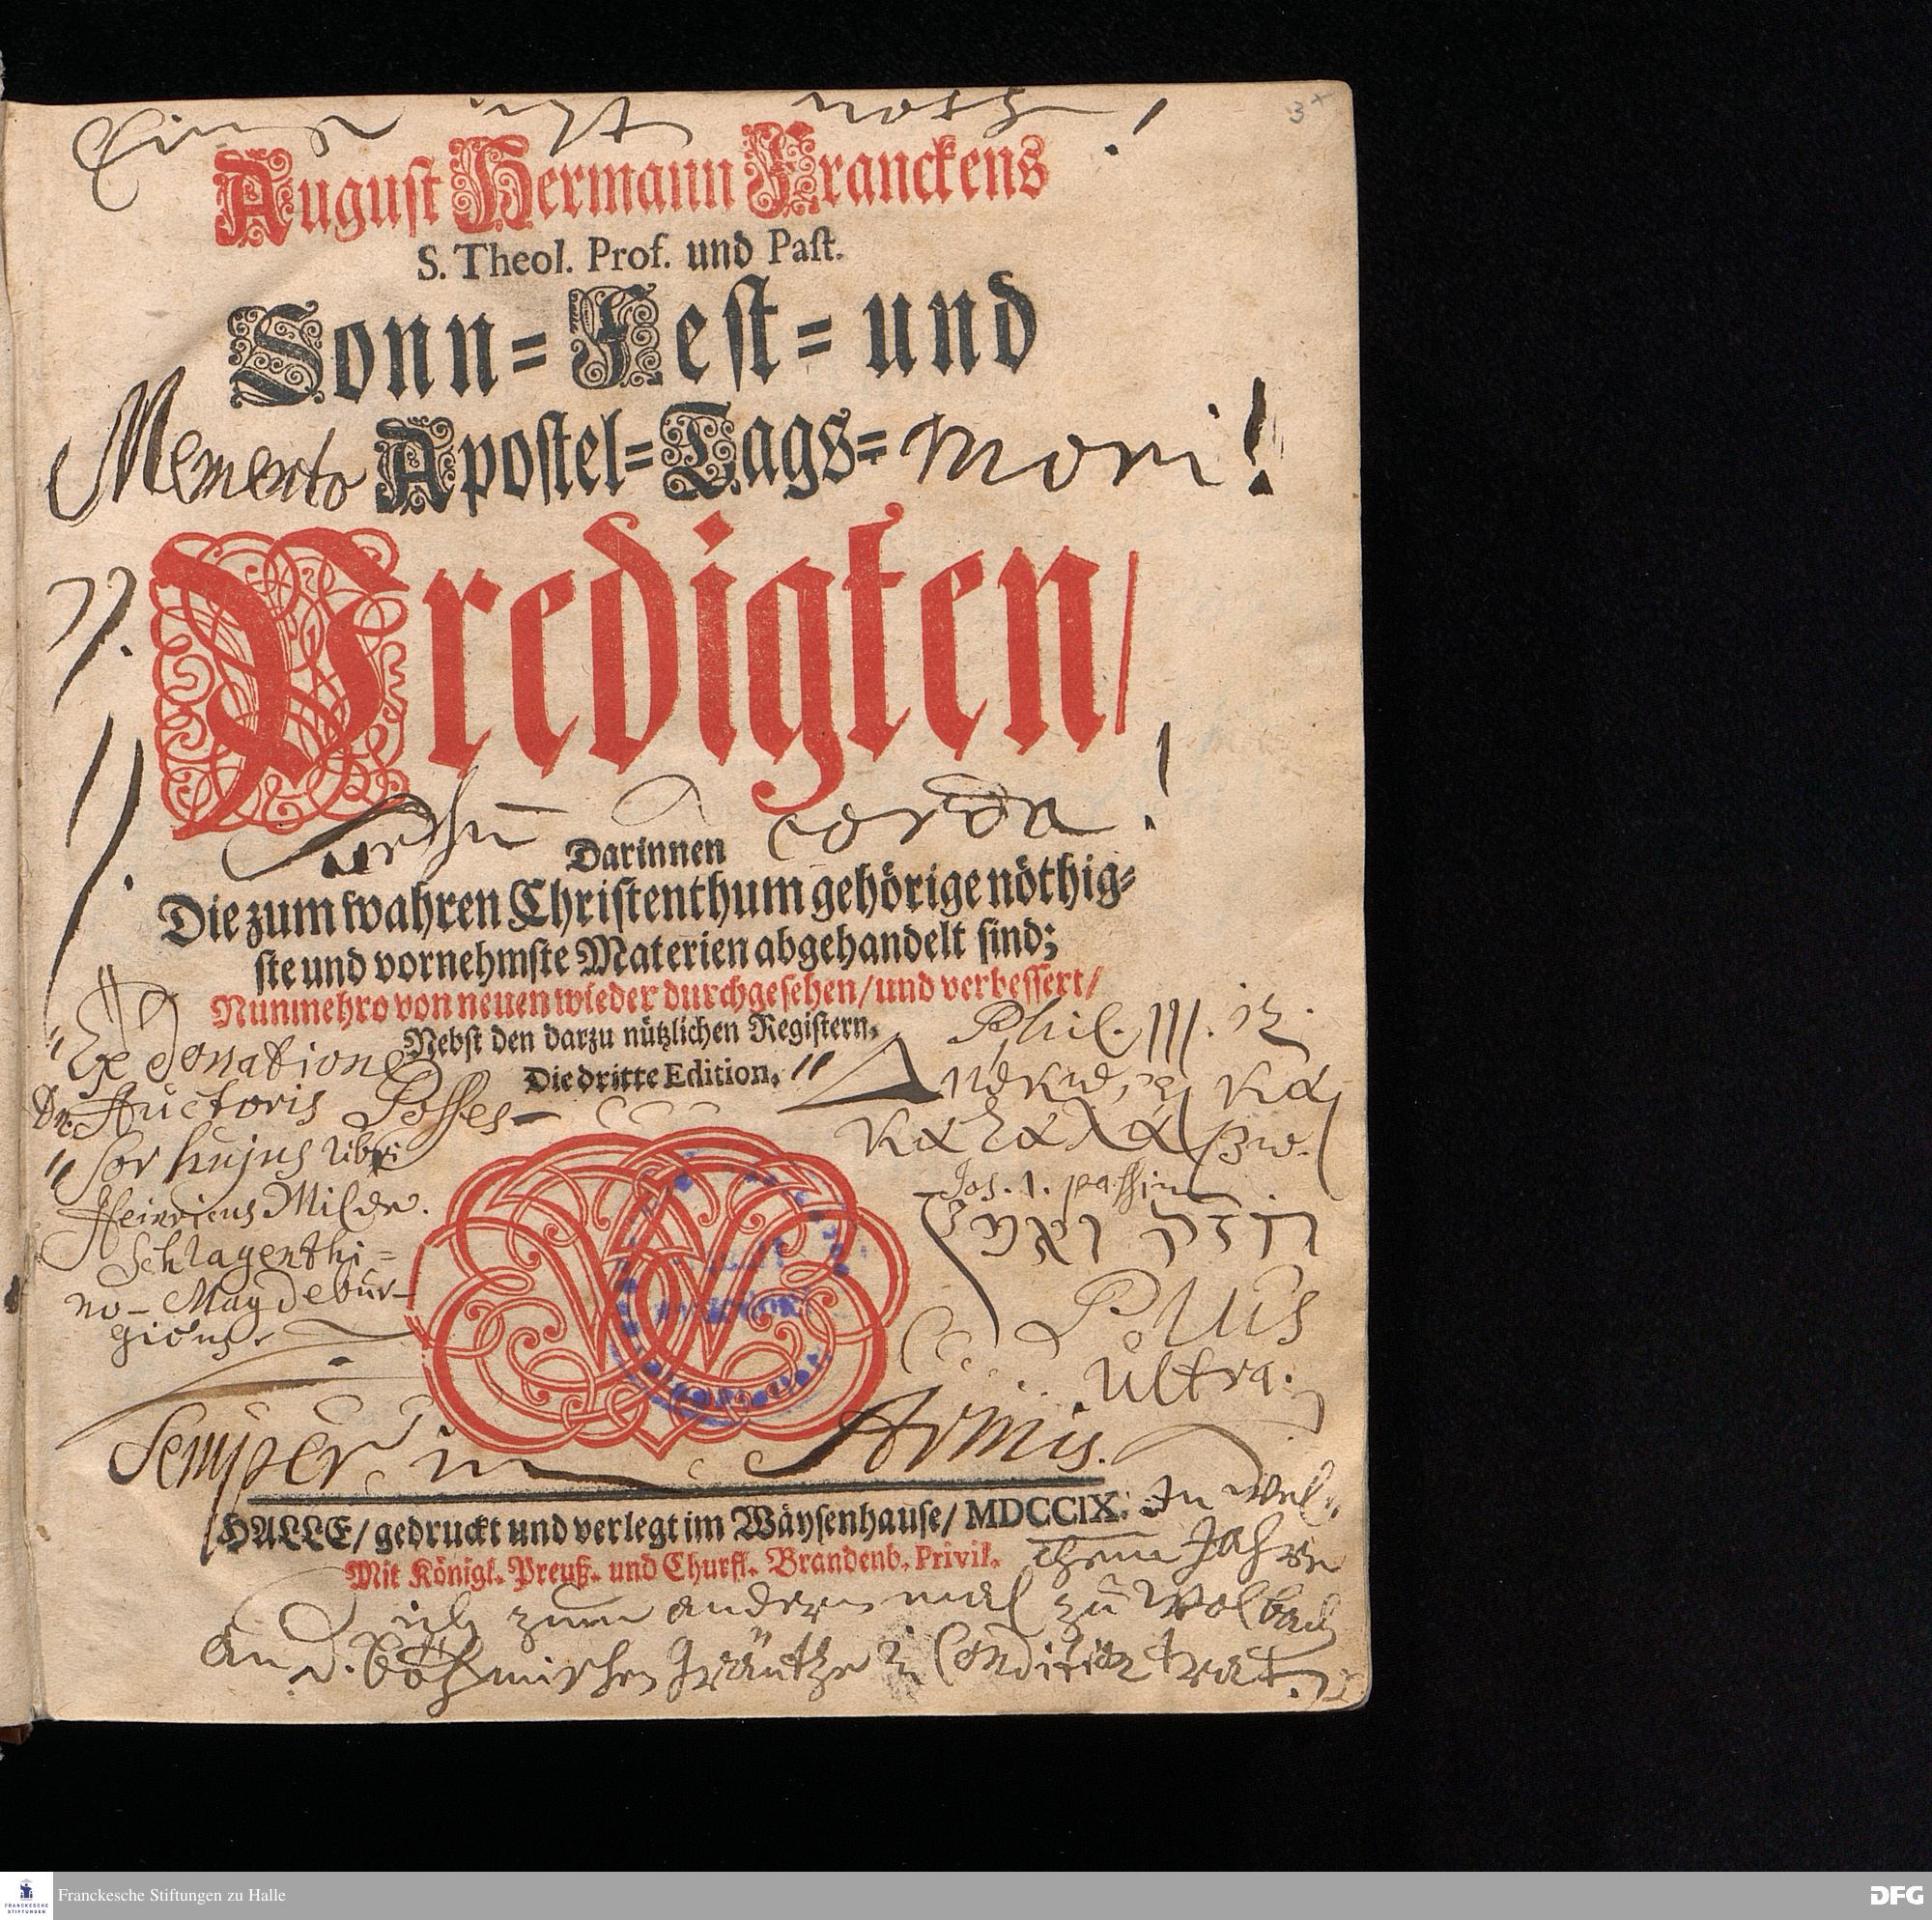 Eins ist noth!
3+
August Hermann Franckens
S. Theol. Prof. und Past.
Sonn-Fest-und
Memento Apostel-Tags- Mori!
Predigten/
Sursū corda!
Darinnen
Die zum wahren Christenthum gehörige nöthig-
ste und vornehmste Materien abgehandelt sind;
Nunmehro von neuen wieder durchgesehen/und verbessert/
Nebst den darzu nützlichen Registern.
Die dritte Edition.
Ex donatione
Dn. Auctoris Posses-
sor hujus libri
Heinricus Milde.
Schlagenthi-
no-Magdebur-
gicus.
Phil. III. 12.
Διώκω, εἰ καὶ
καταλάβω.
Jos. 1. passim
חזק ואמץ
Plus
Ultra.
Semper in Armis.
HALLE/gedruckt und verlegt im Wäysenhause/MDCCIX. In wel-
Mit Königl. Preuß. und Churfl. Brandenb. Privil. chem Jahre
ich zum andern mal zu Wolbach
an d. böhmischen Gräntze in Condition trat.
Franckesche Stiftungen zu Halle
FRANCKESCHE
STIFTUNGEN
DFG